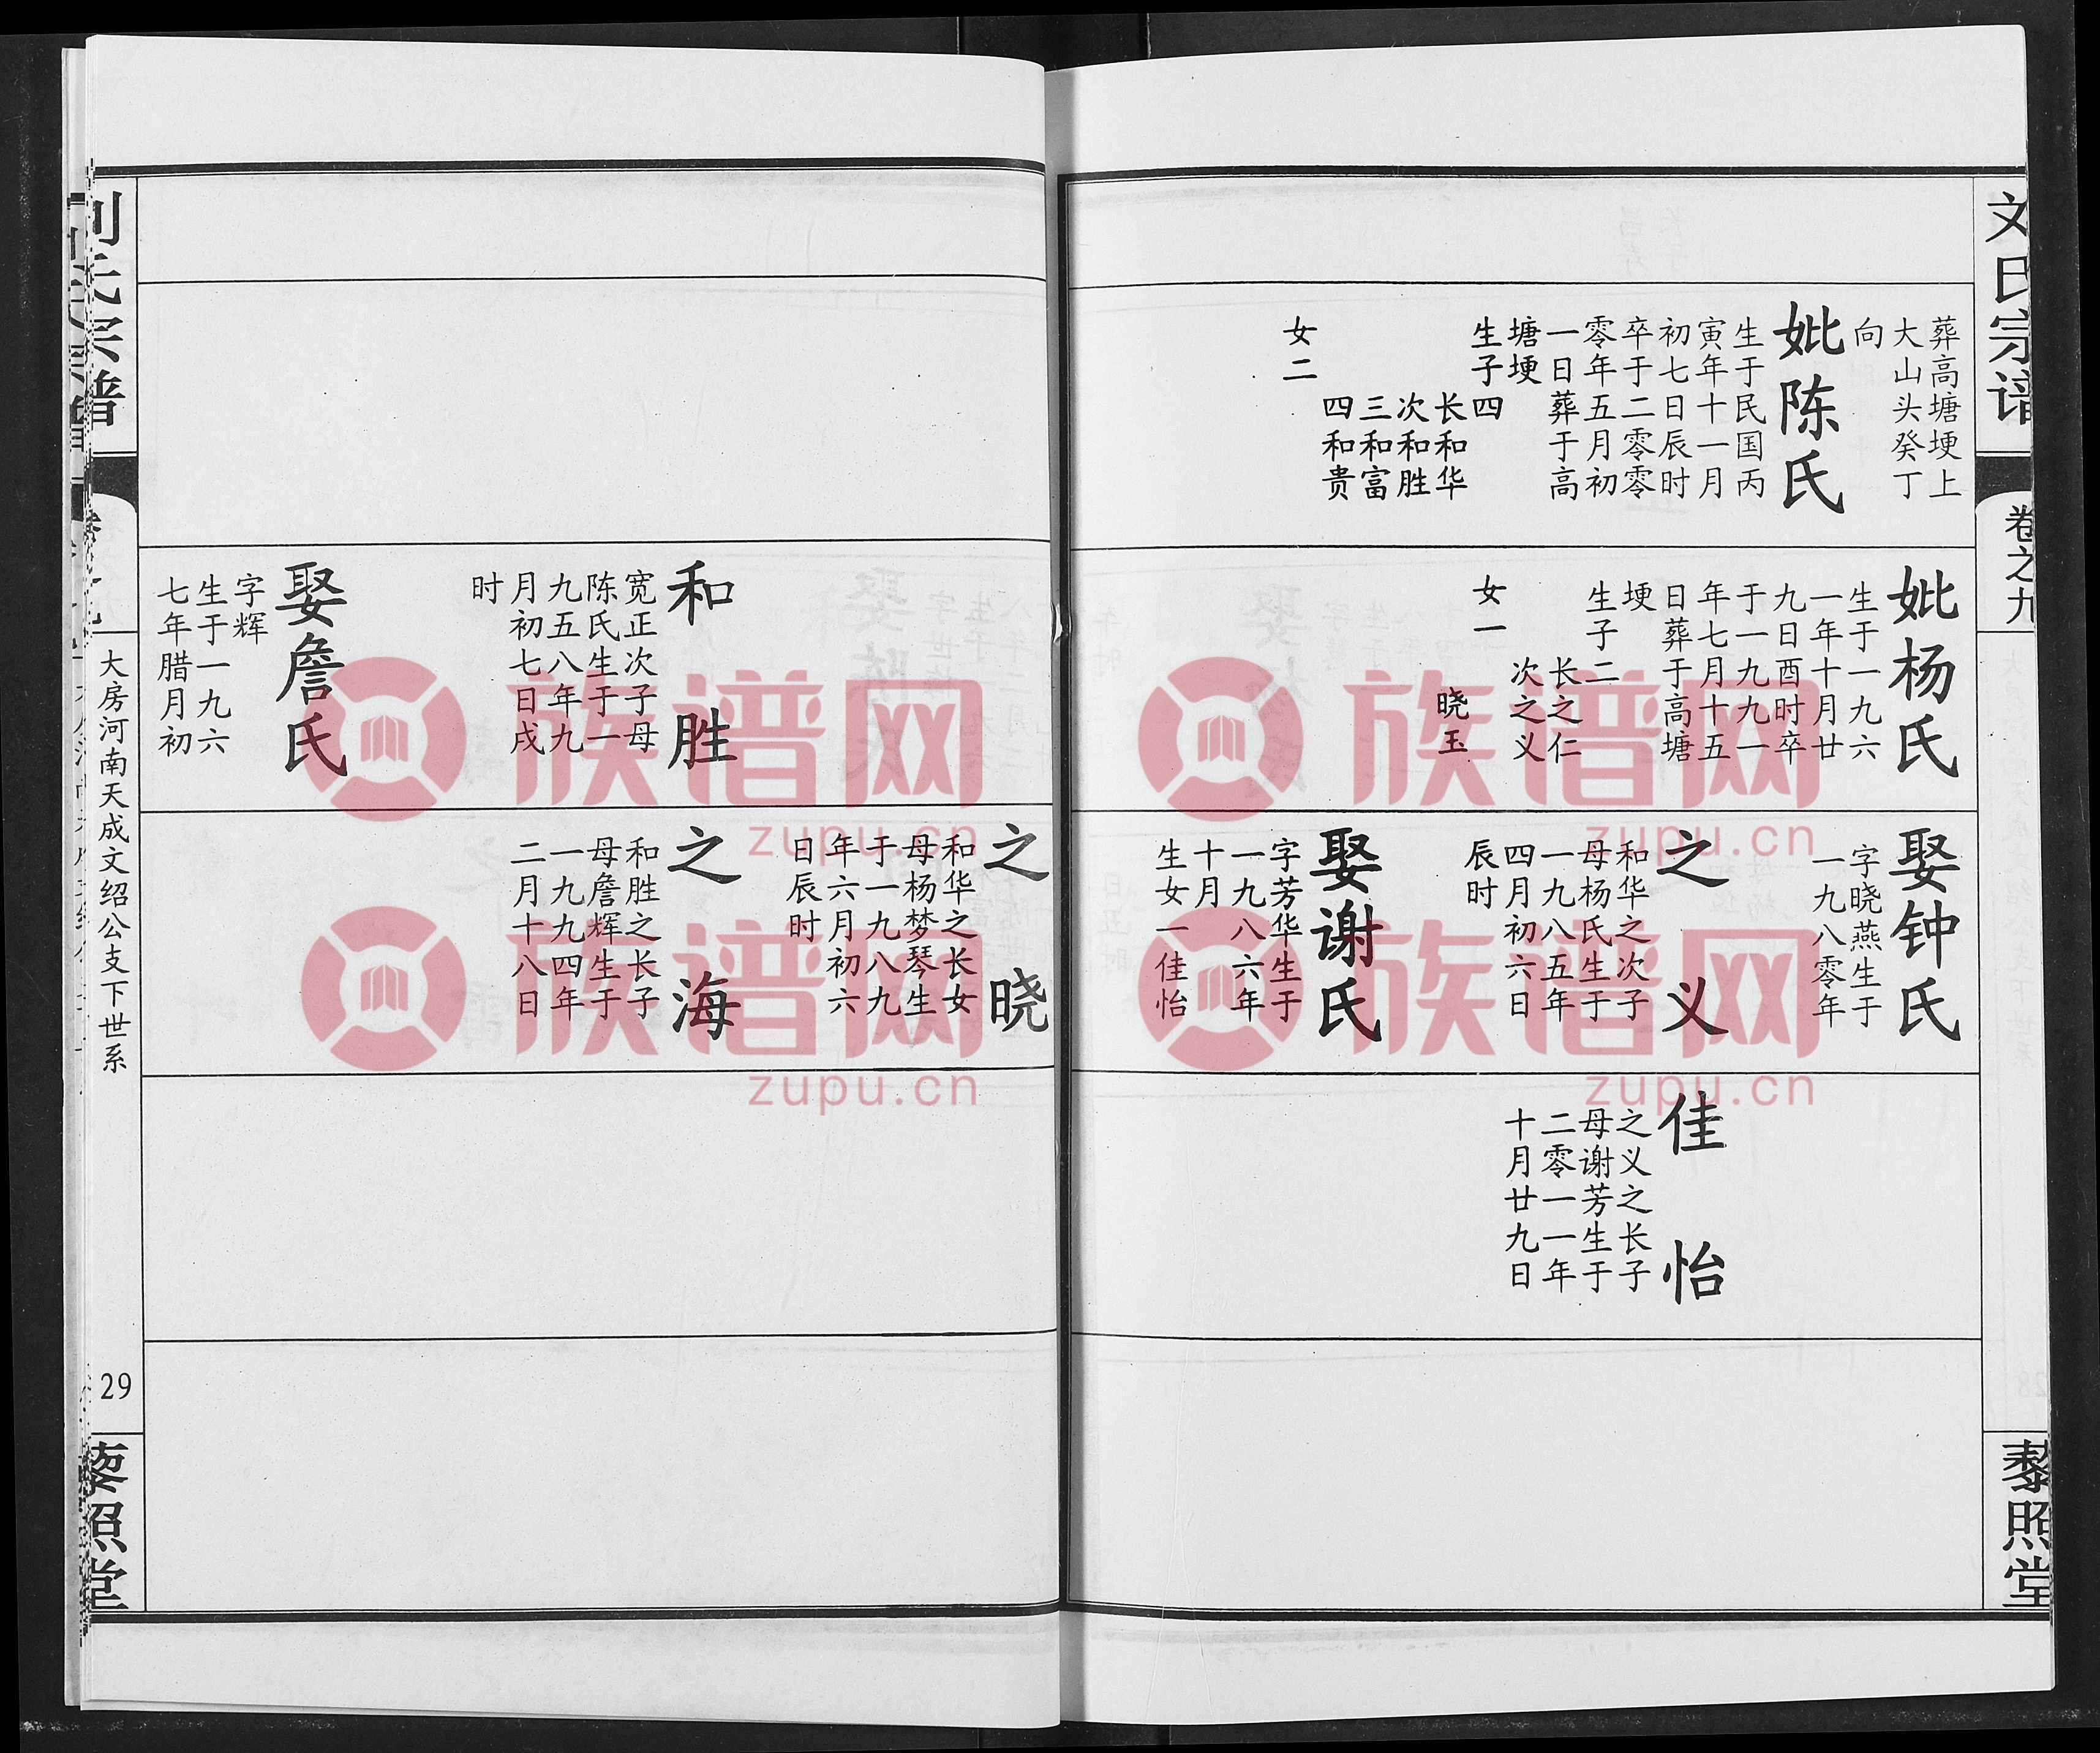 文氏宗谱
卷之九
藜照堂
葬高塘埂上
大山头癸丁
向
妣陈氏
生于民国丙
寅年十一月
初七日辰时
卒于二零零
零年五月初
一日葬于高
塘埂
生子四
长和华
次和胜
三和富
四和贵
女二
妣杨氏
生于一九六
一年十月廿
九日酉时卒
于一九九一
年七月十五
日葬于高塘
埂
生子二
长之仁
次之义
女一
晓玉
娶钟氏
字晓燕生于
一九八零年
之义
和华之次子
母杨氏生于
一九八五年
四月初六日
辰时
娶谢氏
字芳华生于
一九八六年
十月
生女一佳怡
佳怡
之义之长子
母谢芳生于
二零一一年
十月廿九日
和胜
宽正次子母
陈氏生于一
九五八年九
月初七日戌
时
娶詹氏
字辉
生于一九六
七年腊月初
之晓
和华之长女
母杨梦琴生
于一九八九
年六月初六
日辰时
之海
和胜之长子
母詹辉生于
一九九四年
二月十八日
大房河南天成文绍公支下世系
29
藜照堂
族谱网
zupu.cn
族谱网
zupu.cn
族谱网
zupu.cn
族谱网
zupu.cn